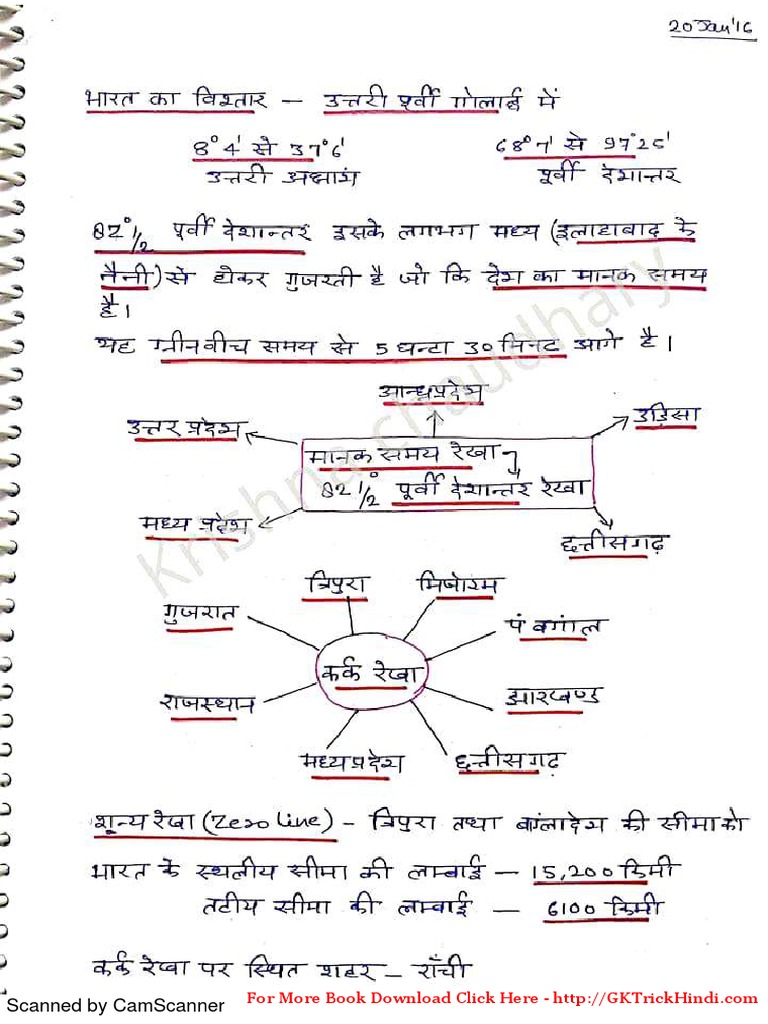 20 Jan'16
भारत का विश्तार — उत्तरी पूर्वी गोलार्द्ध में
8°4' से 37°6' 68°7' से 97°25'
उत्तरी अक्षांश पूर्वी देशान्तर
82°1/2 पूर्वी देशान्तर इसके लगभग मध्य (इलाहाबाद के
नैनी) से होकर गुजरती है जो कि देश का मानक समय
है।
यह ग्रीनवीच समय से 5 घन्टा 30 मिनट आगे है।
आन्ध्रप्रदेश
उत्तर प्रदेश उड़िसा
मानक समय रेखा
82 1/2° पूर्वी देशान्तर रेखा
मध्य प्रदेश छत्तीसगढ़
त्रिपुरा मिजोरम
गुजरात पं बंगाल
कर्क रेखा
राजस्थान झारखण्ड
मध्यप्रदेश छत्तीसगढ़
शून्य रेखा (Zero Line) – त्रिपुरा तथा बांग्लादेश की सीमा को
भारत के स्थलीय सीमा की लम्बाई — 15,200 किमी
तटीय सीमा की लम्बाई — 6100 किमी
कर्क रेखा पर स्थित शहर – राँची
Krishna chaudhary
Scanned by CamScanner
For More Book Download Click Here - http://GKTrickHindi.com